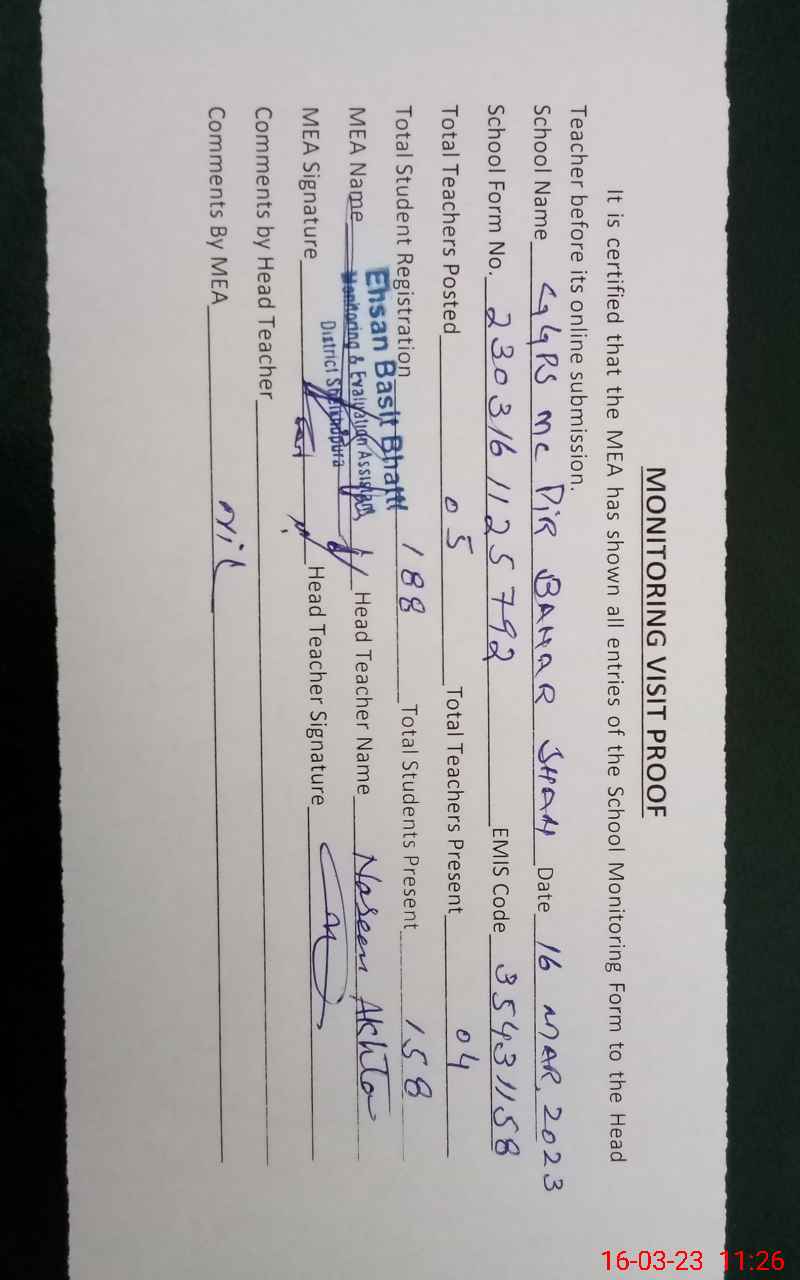 MONITORING VISIT PROOF
It is certified that the MEA has shown all entries of the School Monitoring Form to the Head
Teacher before its online submission.
School Name GGPS MC PIR BAHAR SHAH Date 16 MAR, 2023
School Form No. 2303161125792 EMIS Code 35431158
Total Teachers Posted 05 Total Teachers Present 04
Total Student Registration 188 Total Students Present 158
MEA Name Head Teacher Name Naseem Akhtar
Ehsan Basit Bhatti
Monitoring & Evaluation Assistant
District Sheikhupura
MEA Signature Head Teacher Signature
Comments by Head Teacher
Comments By MEA Nil
16-03-23 11:26